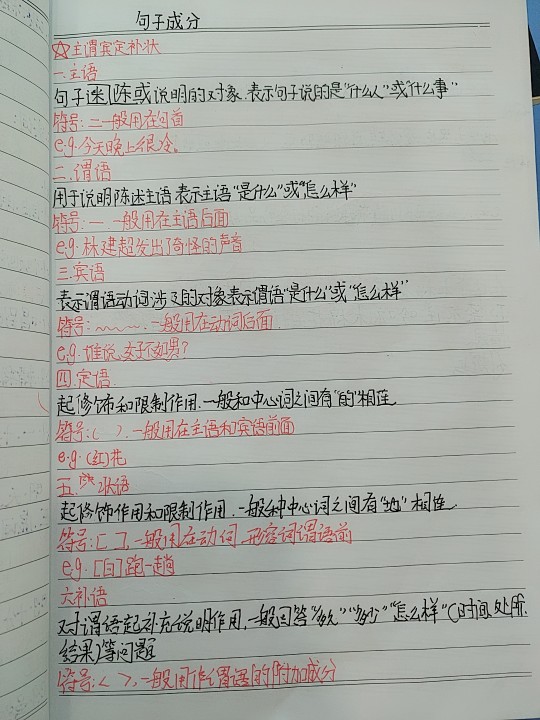 句子成分
☆主谓宾定补状
一.主语
句子述陈或说明的对象.表示句子说的是"什么人"或"什么事"
符号:二一般用在句首
e.g.今天晚上很冷。
二.谓语
用于说明陈述主语 表示主语"是什么"或"怎么样"
符号:— 一般用在主语后面
e.g.林建超发出了奇怪的声音
三.宾语
表示谓语动词涉及的对象表示谓语"是什么"或"怎么样"
符号:﹏﹏.一般用在动词后面
e.g.谁说女子不如男?
四.定语.
起修饰和限制作用.一般和中心词之间有"的"相连
符号:( ).一般用在主语和宾语前面
e.g.(红)花
五.状语
起修饰作用和限制作用.一般和中心词之间有"地"相连
符号:[ ],一般用在动词 形容词谓语前
e.g.[白]跑一趟
六补语
对谓语起补充说明作用,一般回答"多久""多少""怎么样"(时间 处所
结果)等问题
符号:< >,一般用作谓语的附加成分